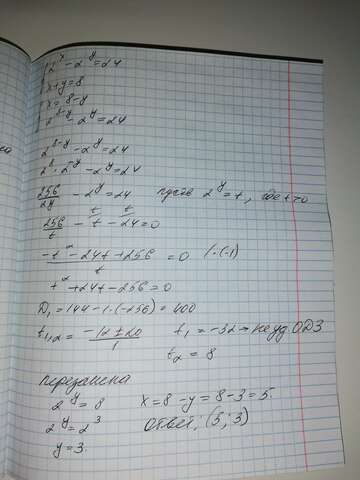 2^x - 2^y = 24
x + y = 8
x = 8 - y
2^(8-y) - 2^y = 24
2^(8-y) - 2^y = 24
2^8 · 2^(-y) - 2^y = 24
256/2^y - 2^y = 24 пусть 2^y = t, где t>0
256/t - t - 24 = 0
(-t² - 24t + 256)/t = 0 |·(-1)
t² + 24t - 256 = 0
D₁ = 144 - 1·(-256) = 400
t₁,₂ = (-12 ± 20)/1 t₁ = -32 → не уд. ОДЗ
t₂ = 8
перезамена
2^y = 8 x = 8 - y = 8 - 3 = 5
2^y = 2^3 Ответ: (5; 3)
y = 3